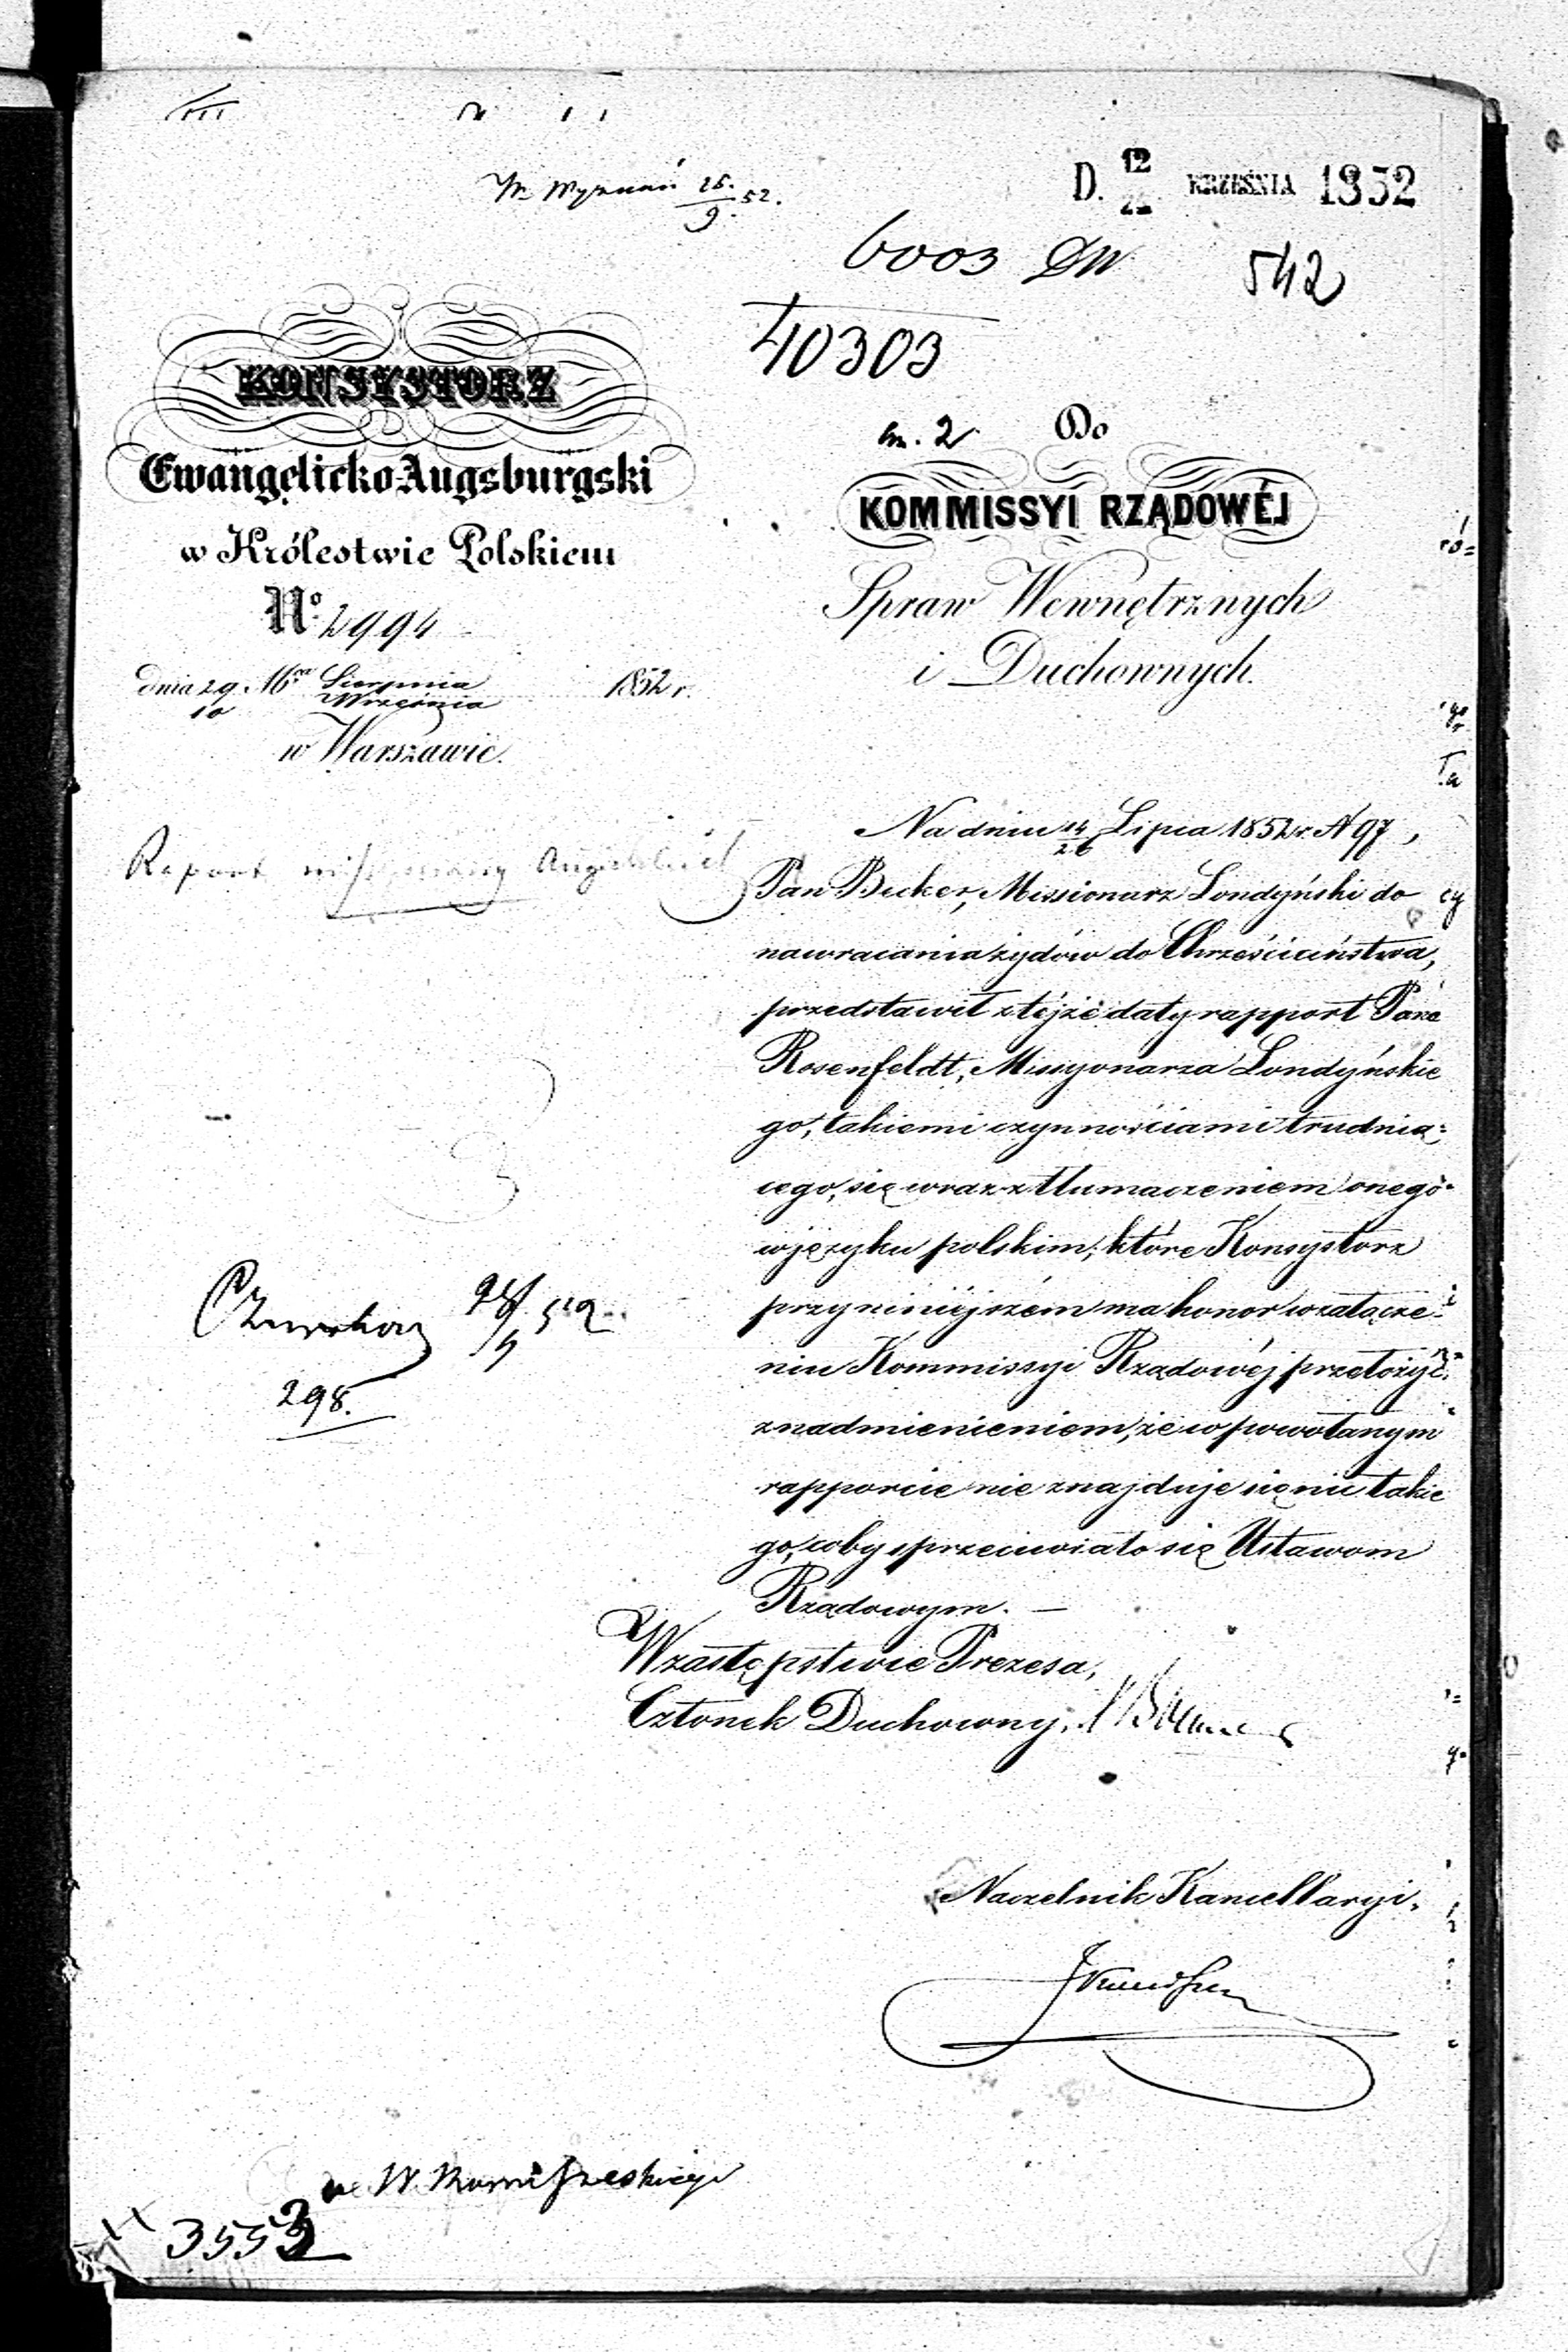 W. Wyznań 25./9. 52.
D. 12/24 WRZEŚNIA 1852
6003 DW 542
40303
KONSYSTORZ
Ewangelicko-Augsburgski
w Królestwie Polskiem
Nº 2994
dnia 29/10 Mca Sierpnia/Września 1852 r.
w Warszawie.
an. 2 Do
KOMMISSYI RZĄDOWÉJ
Spraw Wewnętrznych
i Duchownych.
Raport
Na dniu 14/26 Lipca 1852 r. N 97,
Pan Becker, Missionarz Londyński do
nawracania żydów do Chrześciaństwa,
przedstawił z tejże daty rapport Pana
Rosenfeldt, Missyonarza Londyńskie
go, takiemi czynnościami trudnią=
cego, się wraz z tłumaczeniem onego
w języku polskim, które Konsystorz
przy niniéjszém ma honor w załącze-
niu Kommissyi Rządowéj przełożyć
z nadmienieniem, że w powołanym
rapporcie nie znajduje się nic takie
go, coby sprzeciwiało się Ustawom
Rządowym. —
W zastępstwie Prezesa,
Członek Duchowny,
298.
Naczelnik Kancellaryi,
3553